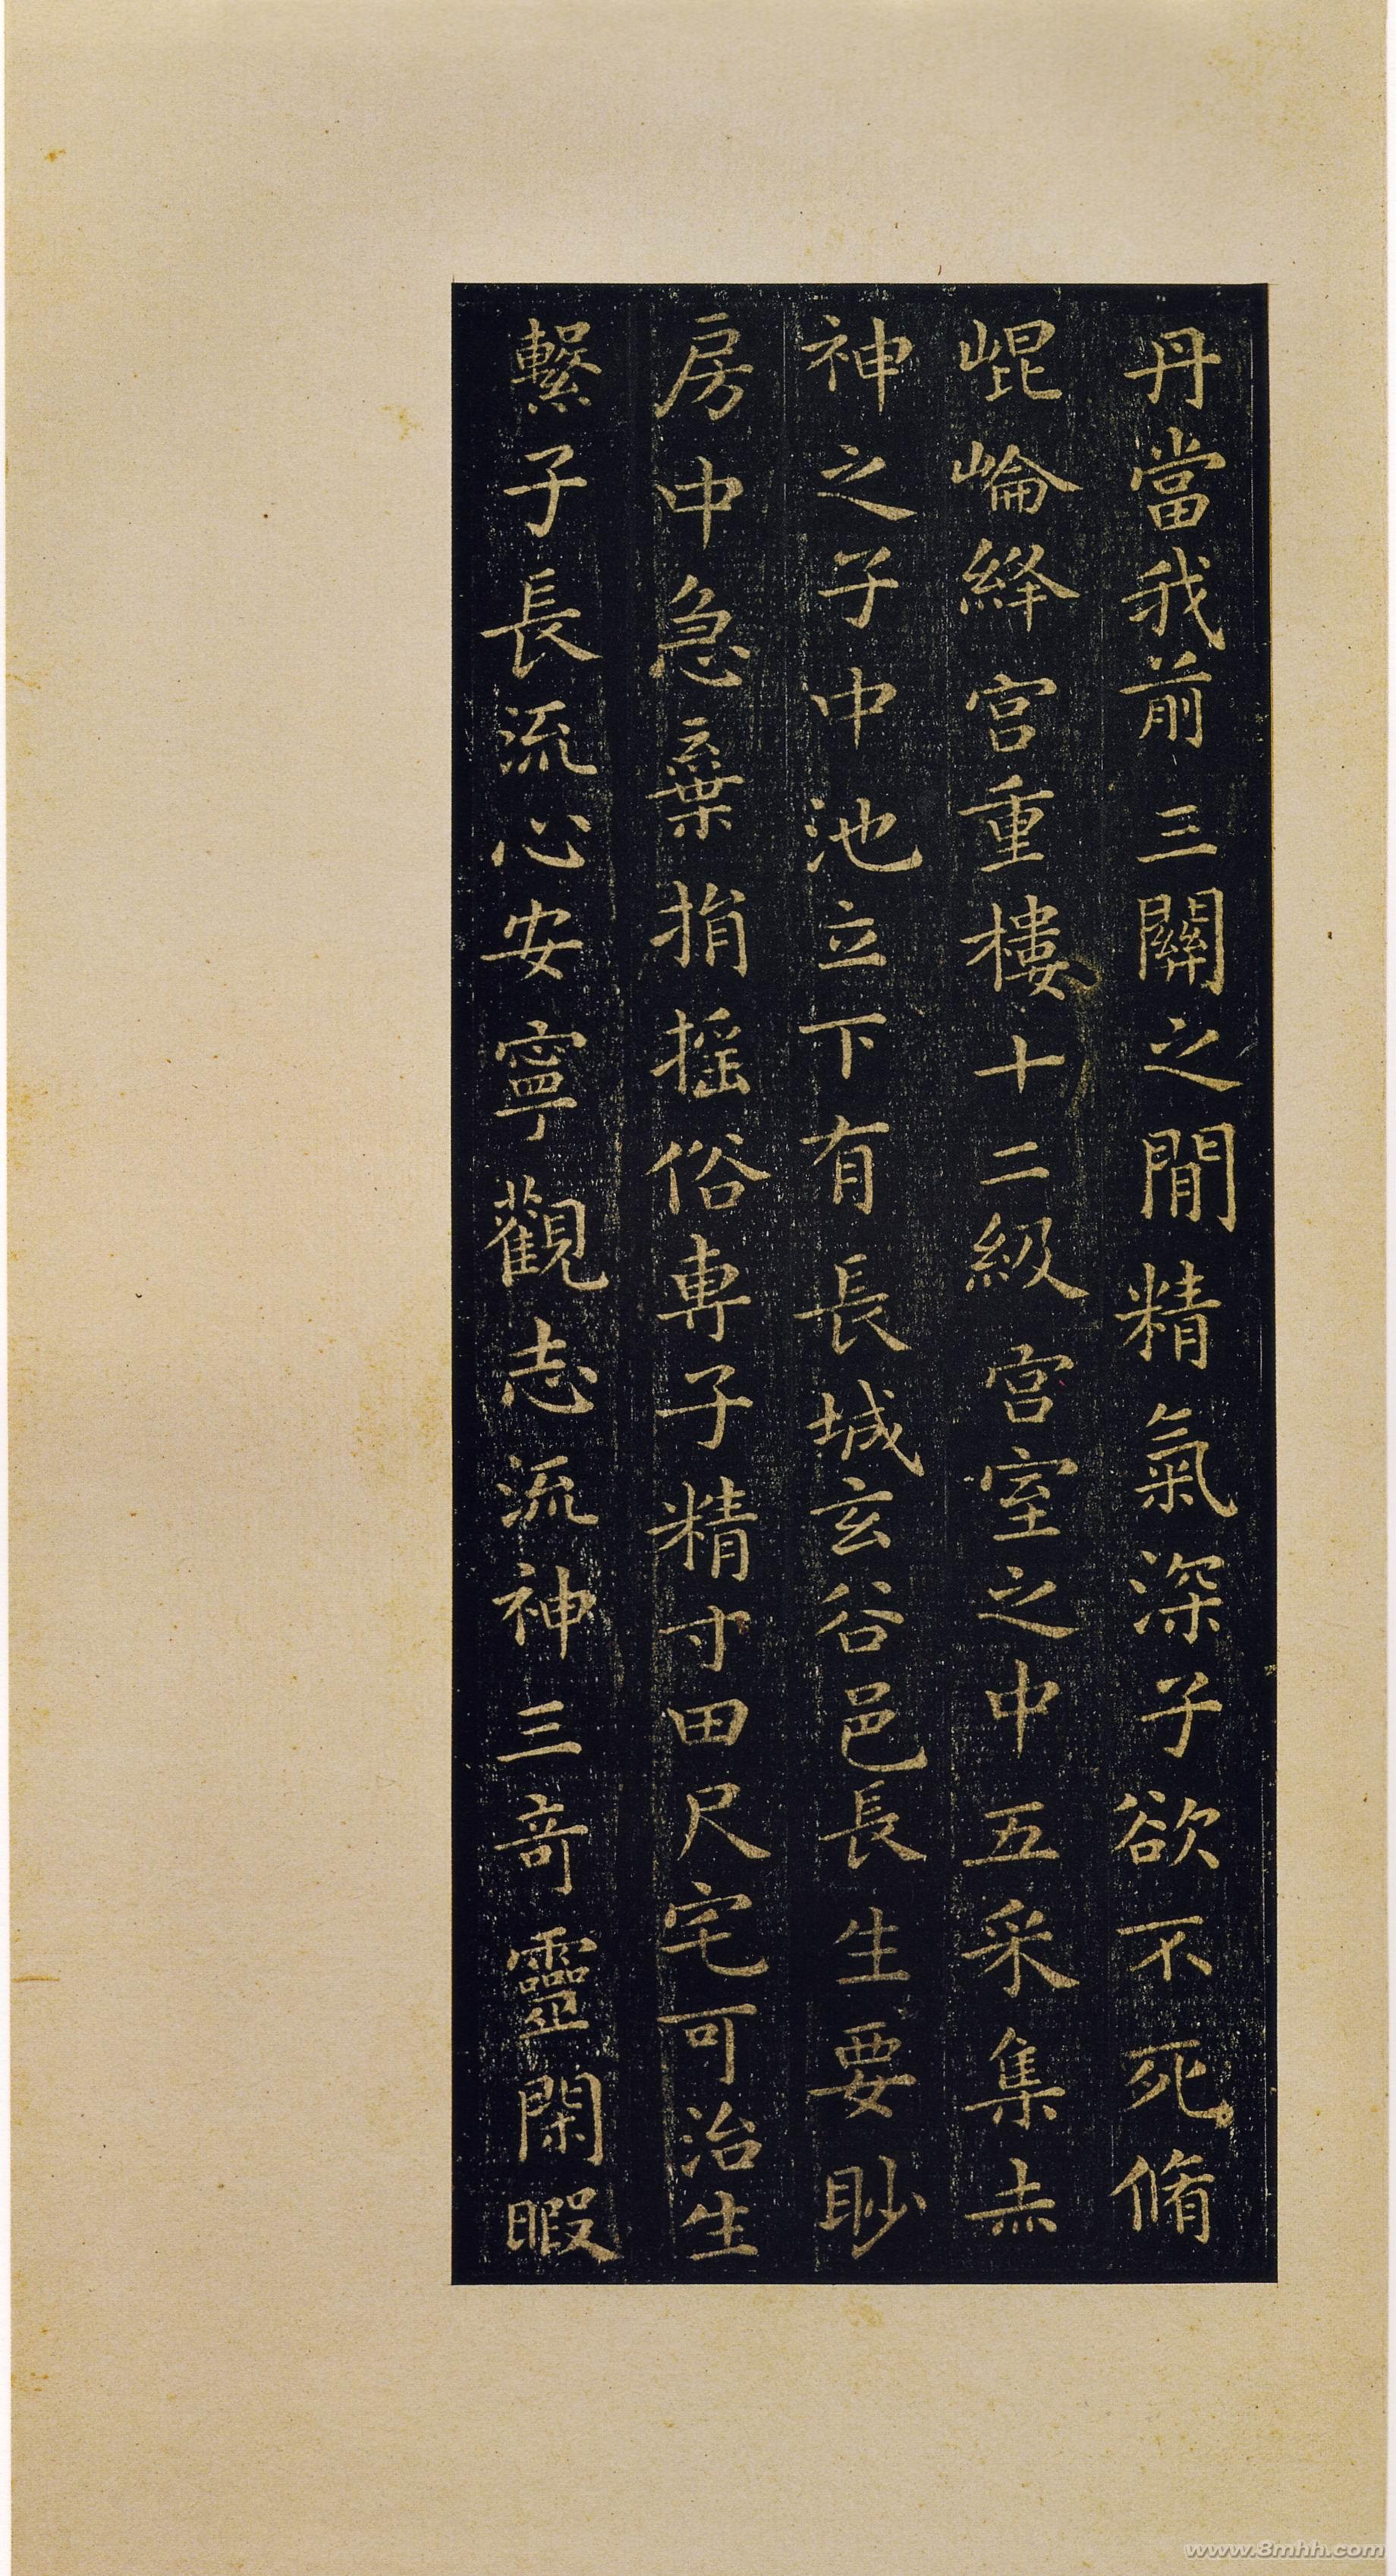 丹當我前三關之間精氣深子欲不死脩
崐崘絳宮重樓十二級宮室之中五采集赤
神之子中池立下有長城玄谷邑長生要眇
房中急棄捐搖俗專子精寸田尺宅可治生
繫子長流心安寧觀志流神三奇靈閑暇
www.8mhh.com